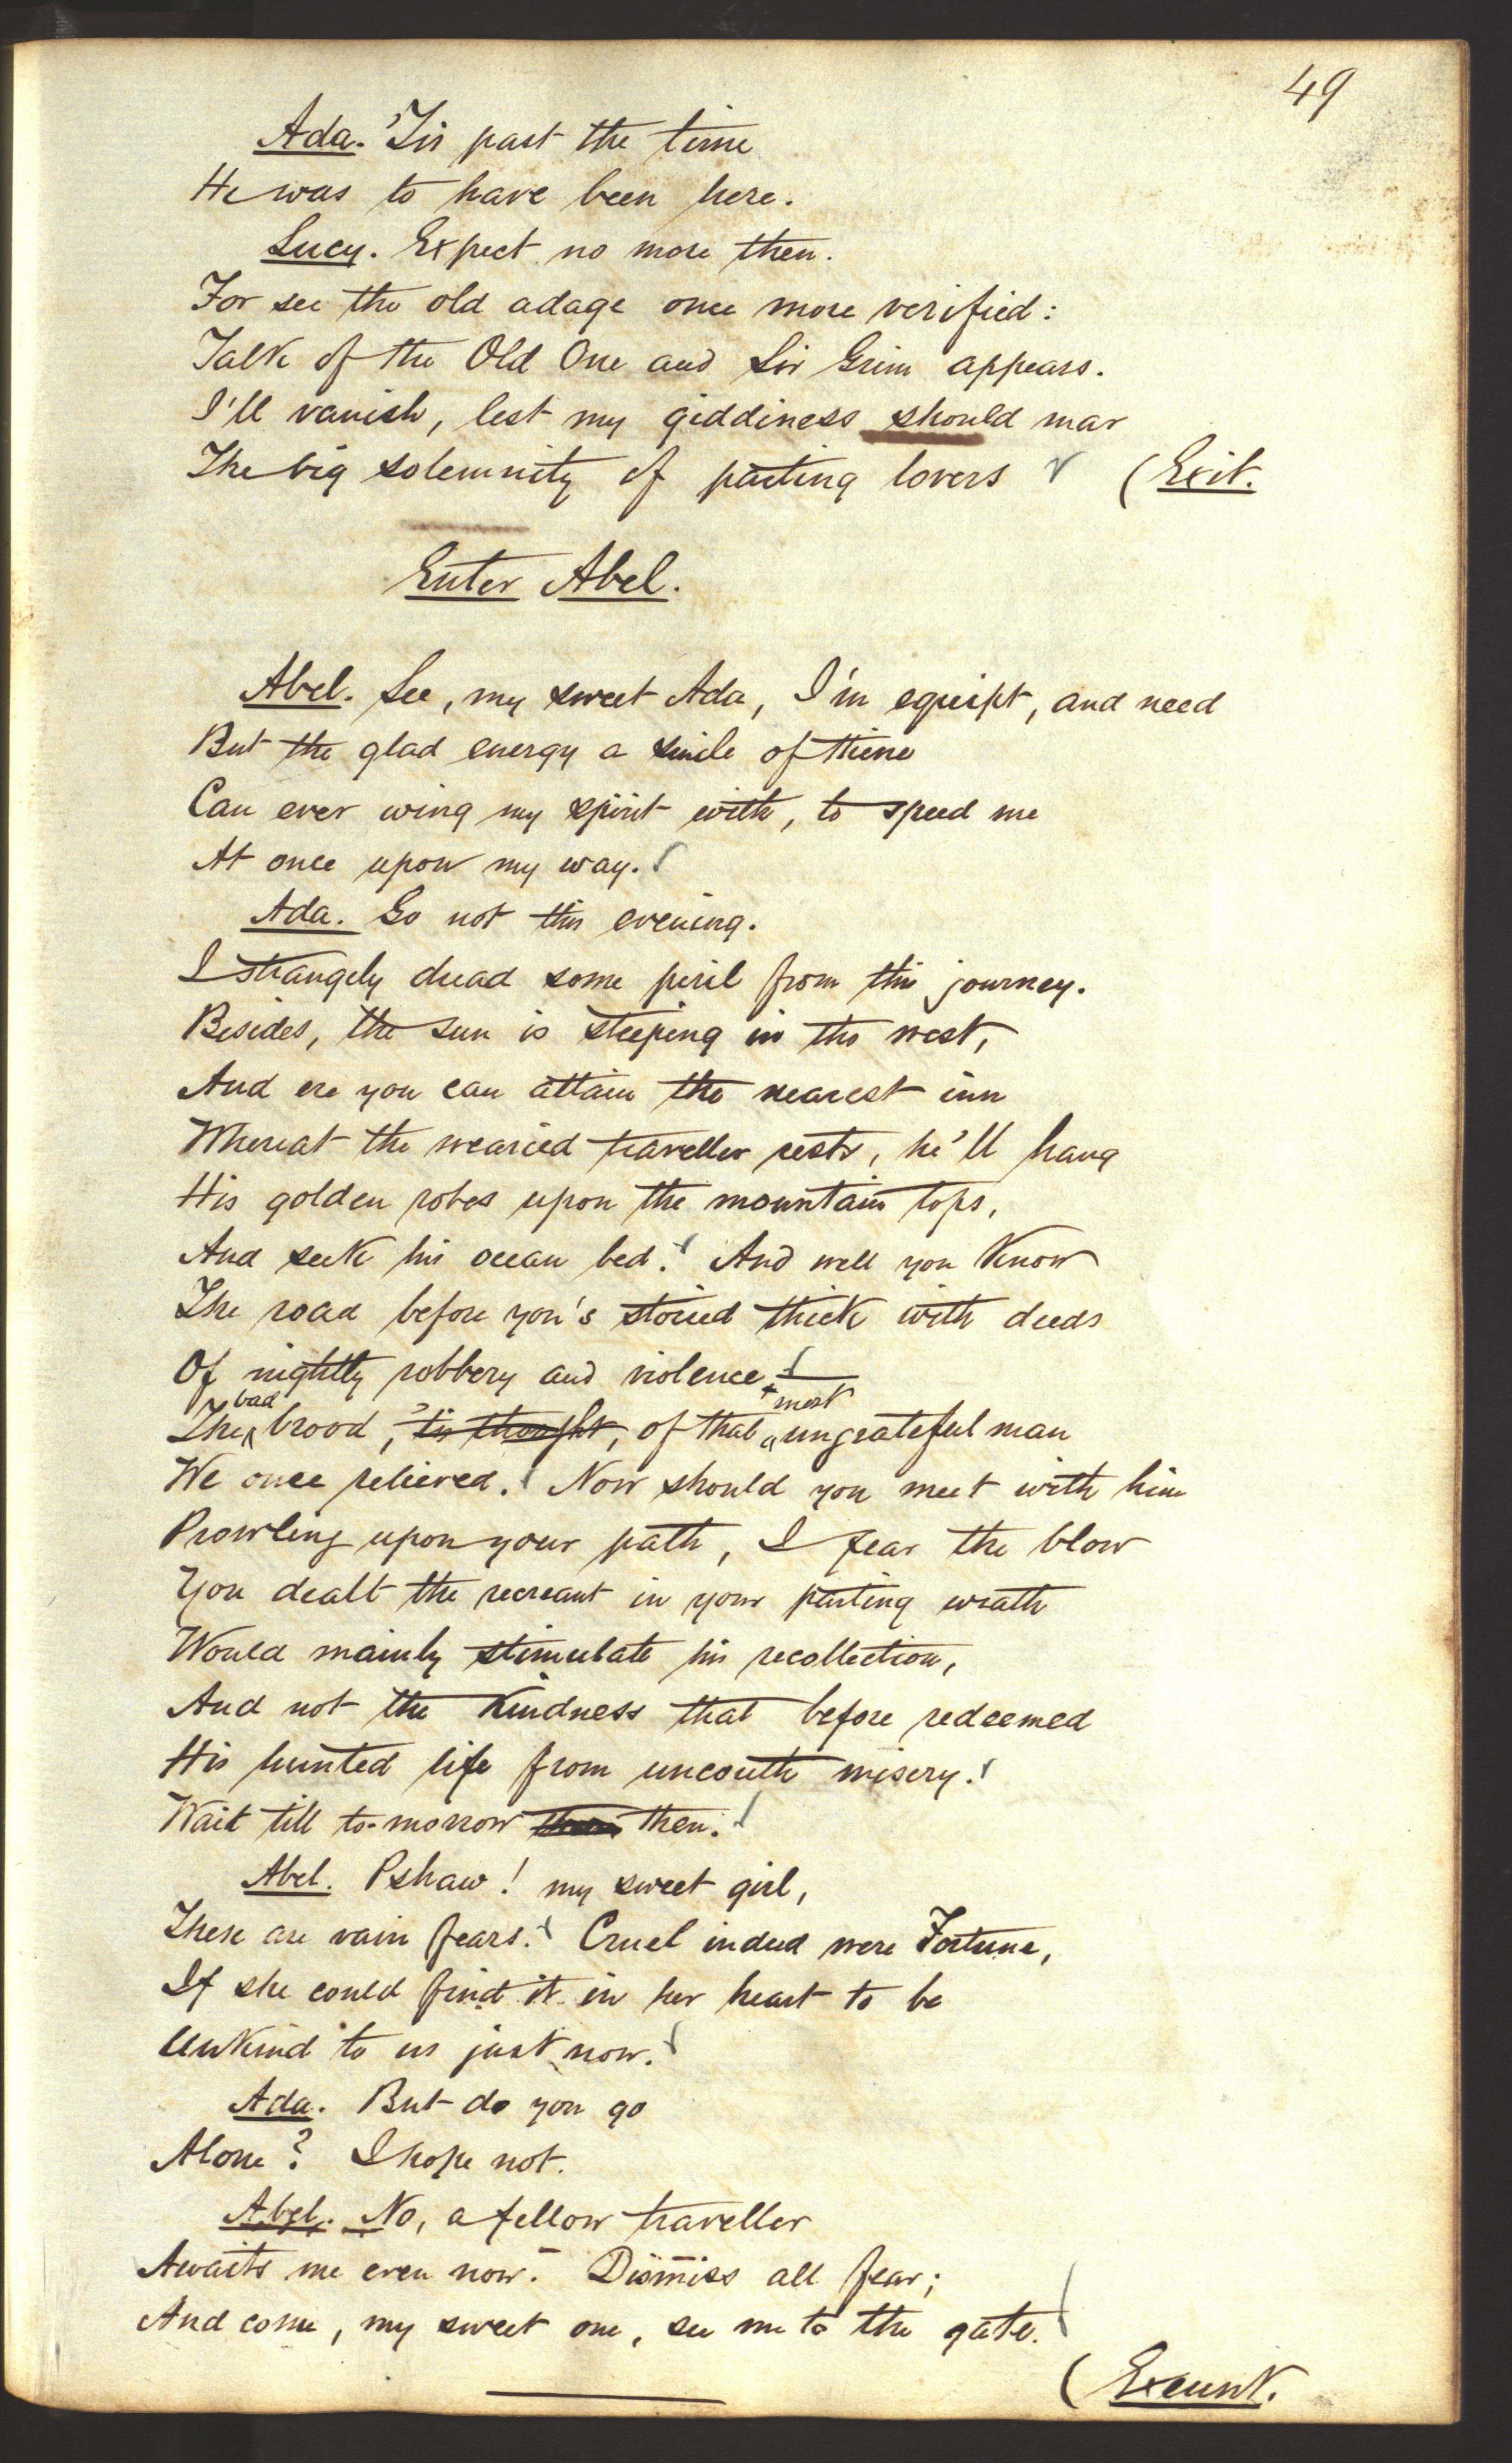 49
Ada. 'Tis past the time
He was to have been here.
Lucy. Expect no more then.
For see the old adage once more verified:
Talk of the Old One and Sir Grim appears.
I'll vanish, lest my giddiness should mar
The big solemnity of parting lovers (Exit.
Enter Abel.
Abel. See, my sweet Ada, I'm equipt, and need
But the glad energy a smile of thine
Can ever wing my spirit with, to speed me
At once upon my way.
Ada. Go not this evening.
I strangely dread some peril from this journey.
Besides, the sun is steeping in the west,
And ere you can attain the nearest inn
Whereat the wearied traveller rests, he'll hang
His golden robes upon the mountain tops,
And seek his ocean bed. And well you know
The road before you's storied thick with deeds
Of nightly robbery and violence,—
The bad brood, 'tis thought, of that most ungrateful man
We once relieved. Now should you meet with him
Prowling upon your path, I fear the blow
You dealt the recreant in your parting wrath
Would mainly stimulate his recollection,
And not the kindness that before redeemed
His hunted life from uncouth misery.
Wait till to-morrow then.
Abel. Pshaw! my sweet girl,
These are vain fears. Cruel indeed were Fortune,
If she could find it in her heart to be
Unkind to us just now.
Ada. But do you go
Alone? I hope not.
Abel. No, a fellow traveller
Awaits me even now. Dismiss all fear;
And come, my sweet one, see me to the gate.
(Exeunt.